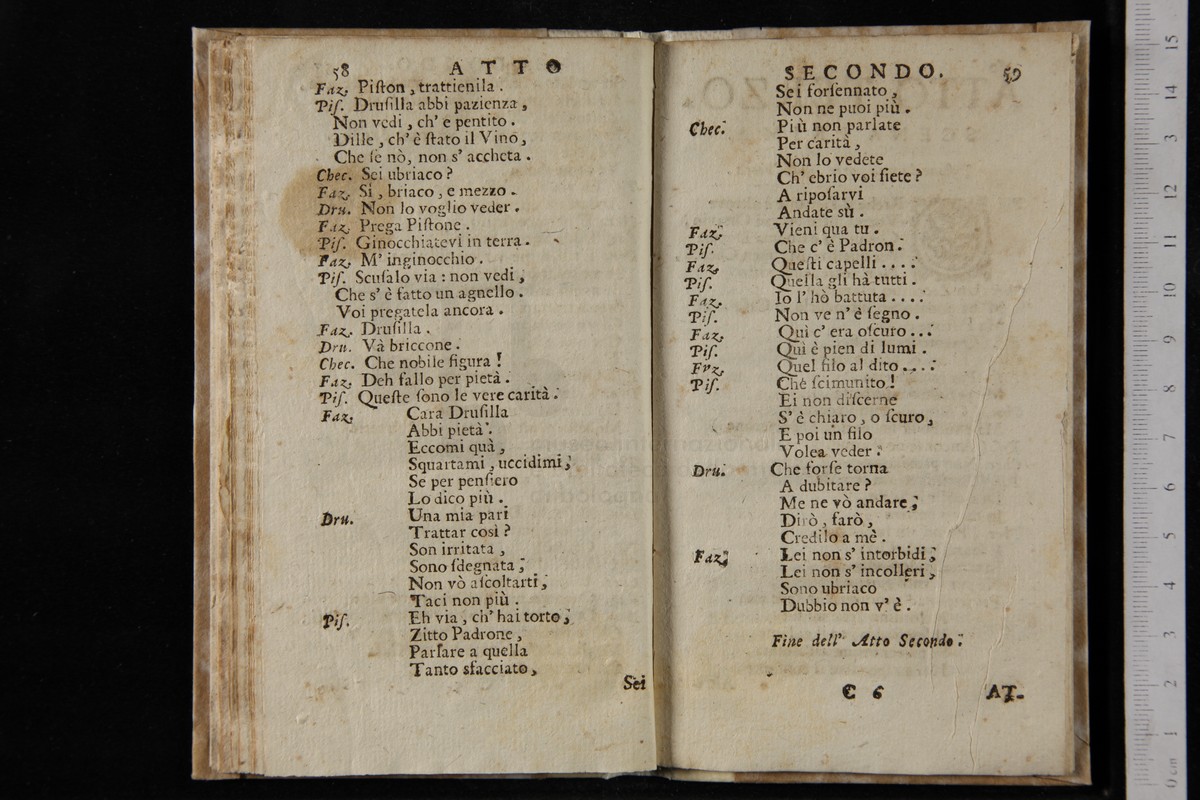 58 ATTO
Faz. Piſton, trattienila.
Piſ. Druſilla abbi pazienza,
Non vedi, ch' e pentito.
Dille, ch' è ſtato il Vino,
Che ſe nò, non s' accheta.
Chec. Sei ubriaco?
Faz. Si, briaco, e mezzo.
Dru. Non lo voglio veder.
Faz. Prega Piſtone.
Piſ. Ginocchiatevi in terra.
Faz. M' inginocchio.
Piſ. Scuſalo via: non vedi,
Che s' è fatto un agnello.
Voi pregatela ancora.
Faz. Druſilla.
Dru. Và briccone.
Chec. Che nobile figura!
Faz. Deh fallo per pietà.
Piſ. Queſte ſono le vere carità.
Faz. Cara Druſilla
Abbi pietà.
Eccomi quà,
Squartami, uccidimi,
Se per penſiero
Lo dico più.
Dru. Una mia pari
Trattar così?
Son irritata,
Sono ſdegnata,
Non vò aſcoltarti,
Taci non più.
Piſ. Eh via, ch' hai torto,
Zitto Padrone,
Parlare a quella
Tanto sfacciato,
Sei
SECONDO. 59
Sei forſennato,
Non ne puoi più.
Chec. Più non parlate
Per carità,
Non lo vedete
Ch' ebrio voi ſiete?
A ripoſarvi
Andate sù.
Faz. Vieni qua tu.
Piſ. Che c' è Padron.
Faz. Queſti capelli....
Piſ. Quella gli hà tutti.
Faz. Io l' hò battuta....
Piſ. Non ve n' è ſegno.
Faz. Quì c' era oſcuro...
Piſ. Quì è pien di lumi.
Fvz. Quel filo al dito....
Piſ. Chè ſcimunito!
Ei non diſcerne
S' è chiaro, o ſcuro,
E poi un filo
Volea veder.
Dru. Che forſe torna
A dubitare?
Me ne vò andare;
Dirò, farò,
Credilo a mè.
Faz. Lei non s' intorbidi,
Lei non s' incolleri,
Sono ubriaco
Dubbio non v' è.
Fine dell' Atto Secondo.
C 6 AT-